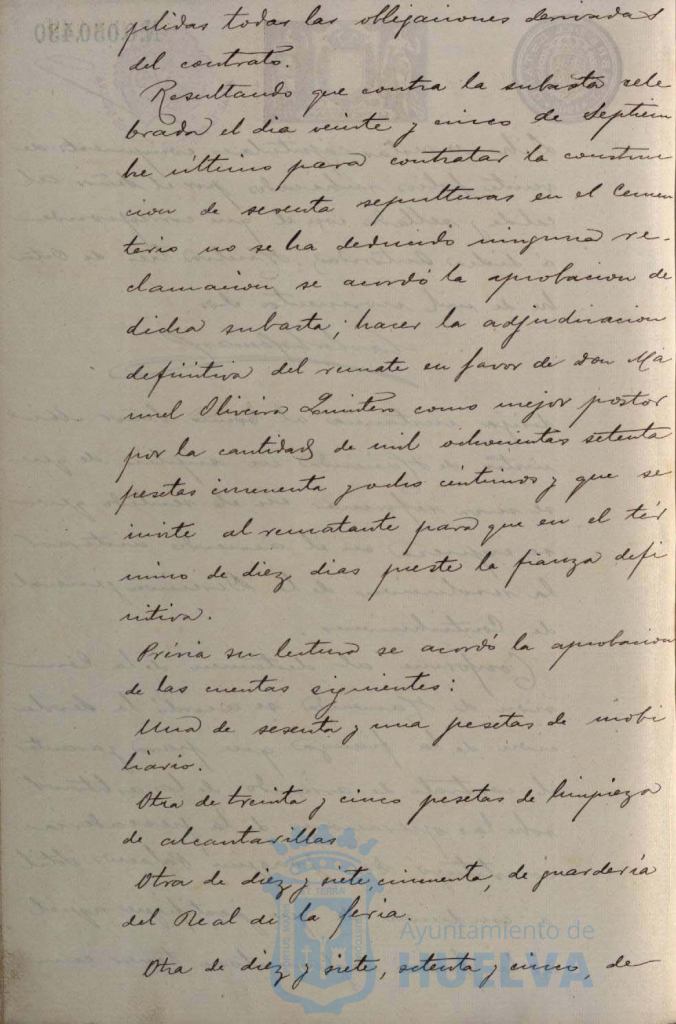 plidas todas las obligaciones derivadas
del contrato.
Resultando que contra la subasta cele
brada el dia veinte y cinco de Septiem
bre último para contratar la construc
cion de sesenta sepulturas en el Cemen
terio no se ha deducido ninguna re-
clamacion se acordó la aprobacion de
dicha subasta; hacer la adjudicacion
definitiva del remate en favor de don Ma
nuel Oliveira Quintero como mejor postor
por la cantidad de mil ochocientas setenta
pesetas cincuenta y ocho céntimos y que se
invite al rematante para que en el tér
mino de diez dias preste la fianza defi
nitiva.
Prévia su lectura se acordó la aprobacion
de las cuentas siguientes:
Una de sesenta y una pesetas de mobi
liario.
Otra de treinta y cinco pesetas de limpieza
de alcantarillas
Otra de diez y siete, cincuenta, de guardería
del Real de la feria.
Otra de diez y siete, setenta y cinco, de
Ayuntamiento de
HUELVA